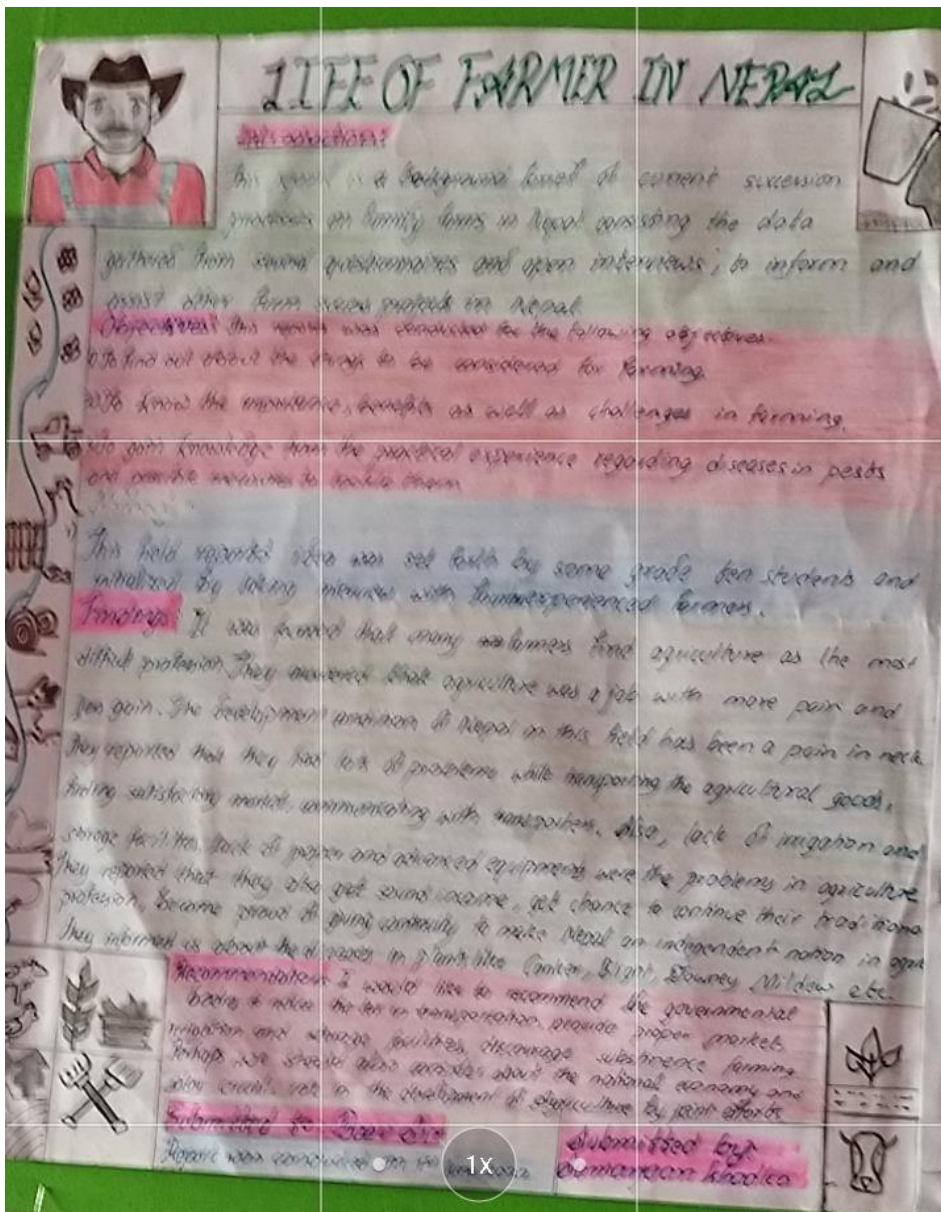 LIFE OF FARMER IN NEPAL
Introduction:
This is a background of current succession
practices on family farms in Nepal consisting the data
gathered from several questionnaires and open interviews, to inform and
assist other farm projects in Nepal.
Objectives: This was conducted for the following objectives.
To find out about the things to be considered for farming.
To know the importance, benefits as well as challenges in farming.
To gain knowledge from the practical experience regarding diseases in pests
and possible measures to tackle them
This field reported was set forth by some grade ten students and
by taking interview with experienced farmers.
Findings: It was founded that many farmers find agriculture as the most
difficult profession. They answered that agriculture was a job with more pain and
less gain. The development of Nepal in this field has been a pain in neck
They reported that they had lots of problems while transporting the agricultural goods,
finding satisfactory market, communicating with transporters. Also, lack of irrigation and
storage facilities, lack of proper and advanced equipments were the problems in agriculture
They reported that they also get sound income, get chance to continue their traditional
profession, become proud of giving to make Nepal an independent nation in
They informed us about the diseases in plants like Canker, Blight, Downey Mildew etc.
Recommendation: I would like to recommend the governmental
bodies to in transportation, provide proper market,
irrigation and storage facilities, discourage subsistence farming
Perhaps, we should also about the national economy and
play role in the development of agriculture by joint efforts.
Submitted to
Report was Submitted by:
1X